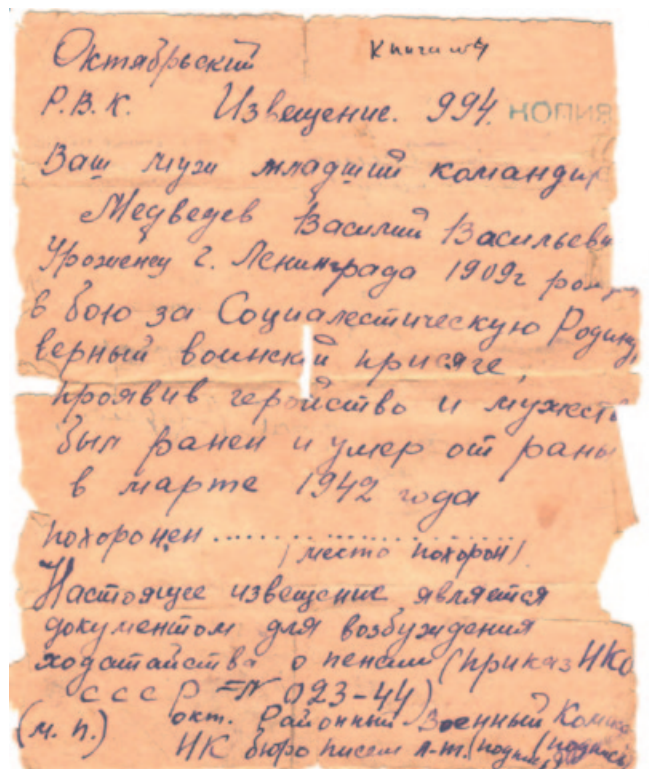 Октябрьский Книга №4
Р.В.К. Извещение. 994. КОПИЯ
Ваш муж младший командир
Медведев Василий Васильеви
Уроженец г. Ленинграда 1909г рожд
в бою за Социалестическую Родину,
верный воинской присяге,
проявив геройство и мужеств
был ранен и умер от раны
в марте 1942 года
похоронен ....................
(место похорон)
Настоящее извещение является
документом для возбуждения
ходатайства о пенсии (приказ НКО
СССР =N 023-44)
(м. п.) окт. Районный Военный Комисс
НК бюро писем (подпись)